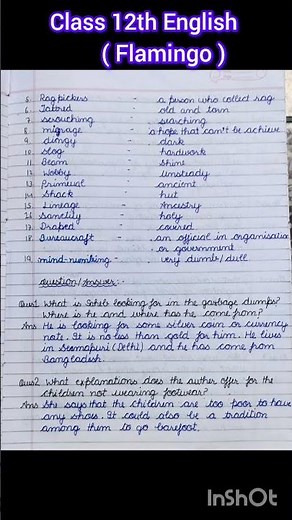 Class 12th English
( Flamingo )
5. Ragpickers - a person who collect rag
6. Tatored - old and torn
7. scrouching - searching
8. migrage - a hope that can't be achieve
9. dingy - dark
10. slog - hardwork
11. Beam - Shine
12. Wobby - Unsteady
13. Primival - ancient
14. Shack - hut
15. Lineage - Ancestry
16. Sanctity - holy
17. Draped - covered
18. Bureaucraft - an official in organisation
or government
19. mind-numbing - very dumb/dull
Question/Answer:-
Ques1 What is Saheb looking for in the garbage dumps?
Where is he and where has he come from?
Ans He is looking for some silver coin or currency
note. It is no less than gold for him. He lives
in Seemapuri (Delhi) and he has come from
Bangladesh.
Ques2 What explanations does the auther offer for the
children not wearing footwear?
Ans She says that the children are too poor to have
any shoes. It could also be a tradition
among them to go barefoot.
InShOt